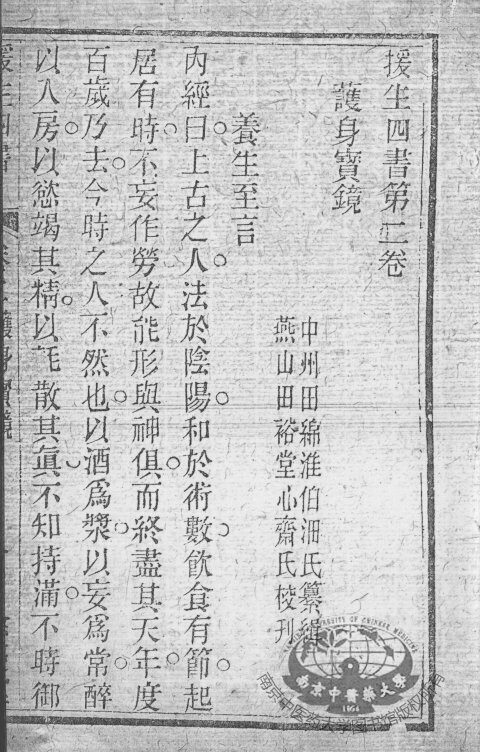 援生四書第二卷
護身寶鏡
中州田綿淮伯沺氏纂緝
燕山田裕堂心齋氏校刊
養生至言
內經曰上古之人法於陰陽和於術數飲食有節起
居有時不妄作勞故能形與神俱而終盡其天年度
百歲乃去今時之人不然也以酒爲漿以妄爲常醉
以入房以慾竭其精以耗散其眞不知持滿不時御
援生四書
護身寶鏡
南京中醫藥大學
1954